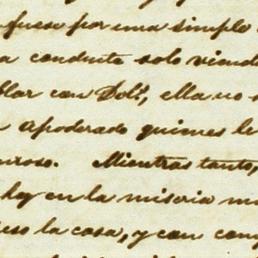 fuese por una simple
a conducta solo viendo
blar con Dolˢ, ella no s
n apoderado quienes le
onroso. Mientras tanto,
hoy en la miseria m
eso la casa, y con con